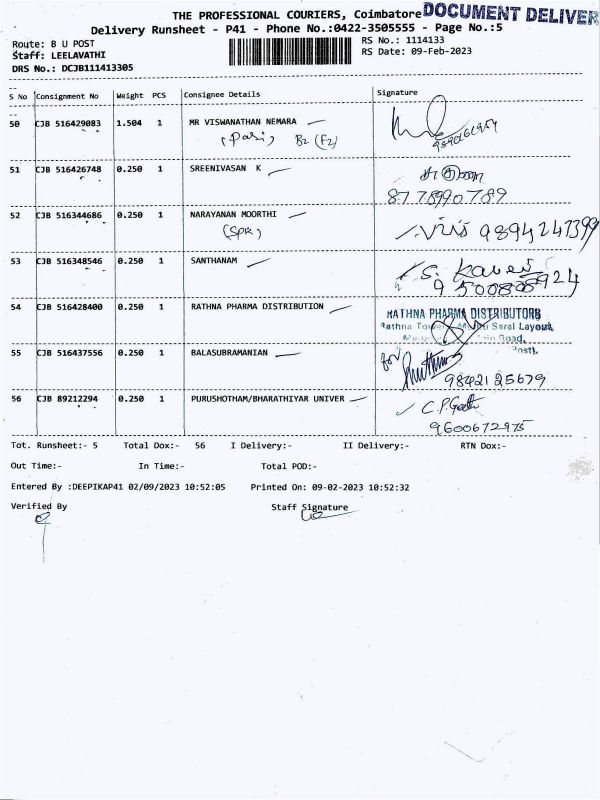 THE PROFESSIONAL COURIERS, Coimbatore DOCUMENT DELIVER
Delivery Runsheet - P41 - Phone No.:0422-3505555 - Page No.:5
Route: B U POST
Staff: LEELAVATHI
DRS No.: DCJB111413305
RS No.: 1114133
RS Date: 09-Feb-2023
S No Consignment No Weight PCS Consignee Details Signature
50 CJB 516429083 1.504 1 MR VISWANATHAN NEMARA
(Pasi) B2 (F2)
51 CJB 516426748 0.250 1 SREENIVASAN K
8778990789
52 CJB 516344686 0.250 1 NARAYANAN MOORTHI
(SPK) 9894247399
53 CJB 516348546 0.250 1 SANTHANAM
54 CJB 516428400 0.250 1 RATHNA PHARMA DISTRIBUTION
RATHNA PHARMA DISTRIBUTORS
Saral Layout,
Road,
55 CJB 516437556 0.250 1 BALASUBRAMANIAN for
9842125679
56 CJB 89212294 0.250 1 PURUSHOTHAM/BHARATHIYAR UNIVER
9600672975
Tot. Runsheet:- 5 Total Dox:- 56 I Delivery:- II Delivery:- RTN Dox:-
Out Time:- In Time:- Total POD:-
Entered By :DEEPIKAP41 02/09/2023 10:52:05 Printed On: 09-02-2023 10:52:32
Verified By Staff Signature